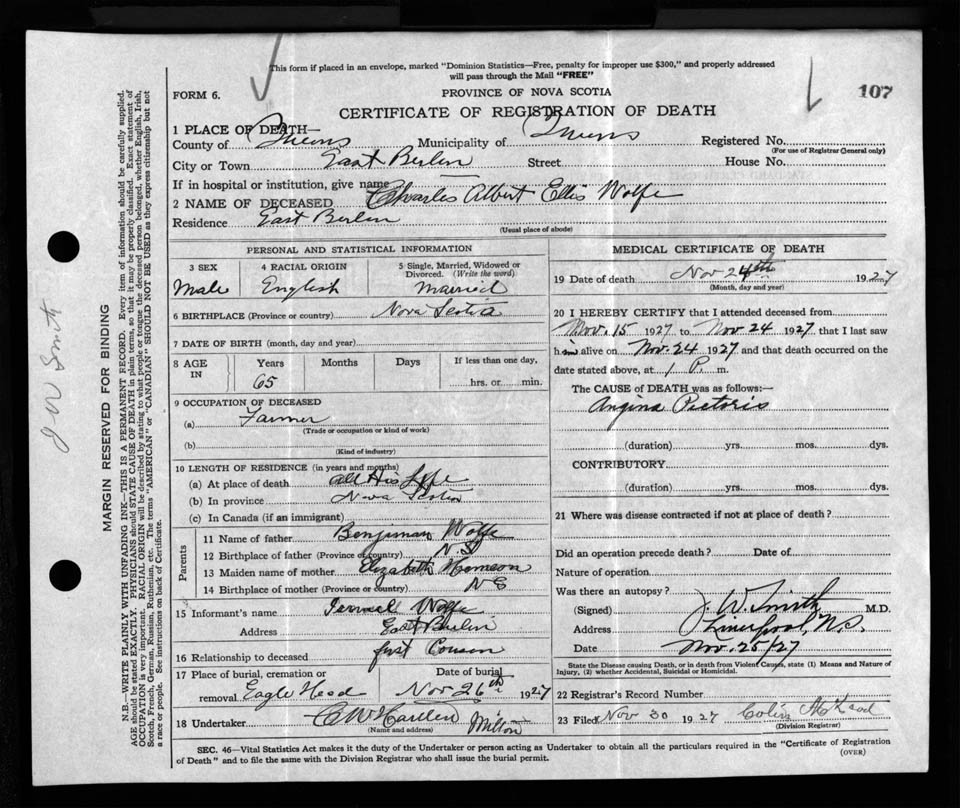 This form if placed in an envelope, marked "Dominion Statistics—Free, penalty for improper use $300," and properly addressed
will pass through the Mail "FREE"
FORM 6.
PROVINCE OF NOVA SCOTIA
107
CERTIFICATE OF REGISTRATION OF DEATH
1 PLACE OF DEATH—
County of Queens Municipality of Queens Registered No.
(For use of Registrar General only)
City or Town East Berlin Street House No.
If in hospital or institution, give name
2 NAME OF DECEASED Charles Albert Ellis Wolfe
Residence East Berlin
(Usual place of abode)
PERSONAL AND STATISTICAL INFORMATION
3 SEX 4 RACIAL ORIGIN 5 Single, Married, Widowed or Divorced. (Write the word)
Male English Married
6 BIRTHPLACE (Province or country) Nova Scotia
7 DATE OF BIRTH (month, day and year)
8 AGE IN Years Months Days If less than one day,
65 hrs. or min.
9 OCCUPATION OF DECEASED
(a) Farmer
(Trade or occupation or kind of work)
(b)
(Kind of industry)
10 LENGTH OF RESIDENCE (in years and months)
(a) At place of death all His Lyfe
(b) In province Nova Scotia
(c) In Canada (if an immigrant)
Parents
11 Name of father Benjiman Wolfe
12 Birthplace of father (Province or country) N.S
13 Maiden name of mother Elizabeth
14 Birthplace of mother (Province or country)
15 Informant's name Wolfe
Address East Berlin
16 Relationship to deceased first Couson
17 Place of burial, cremation or Date of burial
removal Eagle Head Nov 26th 1927
18 Undertaker Milton
(Name and address)
MEDICAL CERTIFICATE OF DEATH
19 Date of death Nov 24th 1927
(Month, day and year)
20 I HEREBY CERTIFY that I attended deceased from
Nov. 15 1927 to Nov 24 1927 that I last saw
him alive on Nov. 24 1927 and that death occurred on the
date stated above, at 1 P. m.
The CAUSE of DEATH was as follows:—
Angina Pectoris
(duration) yrs. mos. dys.
CONTRIBUTORY
(duration) yrs. mos. dys.
21 Where was disease contracted if not at place of death?
Did an operation precede death? Date of
Nature of operation
Was there an autopsy?
(Signed) J. W. Smith M.D.
Address Liverpool, N.S.
Date Nov. 25/27
State the Disease causing Death, or in death from Violent Causes, state (1) Means and Nature of
Injury, (2) whether Accidental, Suicidal or Homicidal.
22 Registrar's Record Number
23 Filed Nov 30 1927 Colin
(Division Registrar)
SEC. 46—Vital Statistics Act makes it the duty of the Undertaker or person acting as Undertaker to obtain all the particulars required in the "Certificate of Registration
of Death" and to file the same with the Division Registrar who shall issue the burial permit. (OVER)
J W Smith
MARGIN RESERVED FOR BINDING
N.B.—WRITE PLAINLY WITH UNFADING INK—THIS IS A PERMANENT RECORD. Every item of information should be carefully supplied.
AGE should be stated EXACTLY. PHYSICIANS should STATE CAUSE OF DEATH in plain terms, so that it may be properly classified. Exact statement of
OCCUPATION is very important. RACIAL ORIGIN will be described by stating to what people or tongue the deceased person belonged, whether English, Irish,
Scotch, French, German, Russian, Ruthenian, etc. The terms "AMERICAN" or "CANADIAN" SHOULD NOT BE USED as they express citizenship but not
a race or people. See instructions on back of Certificate.